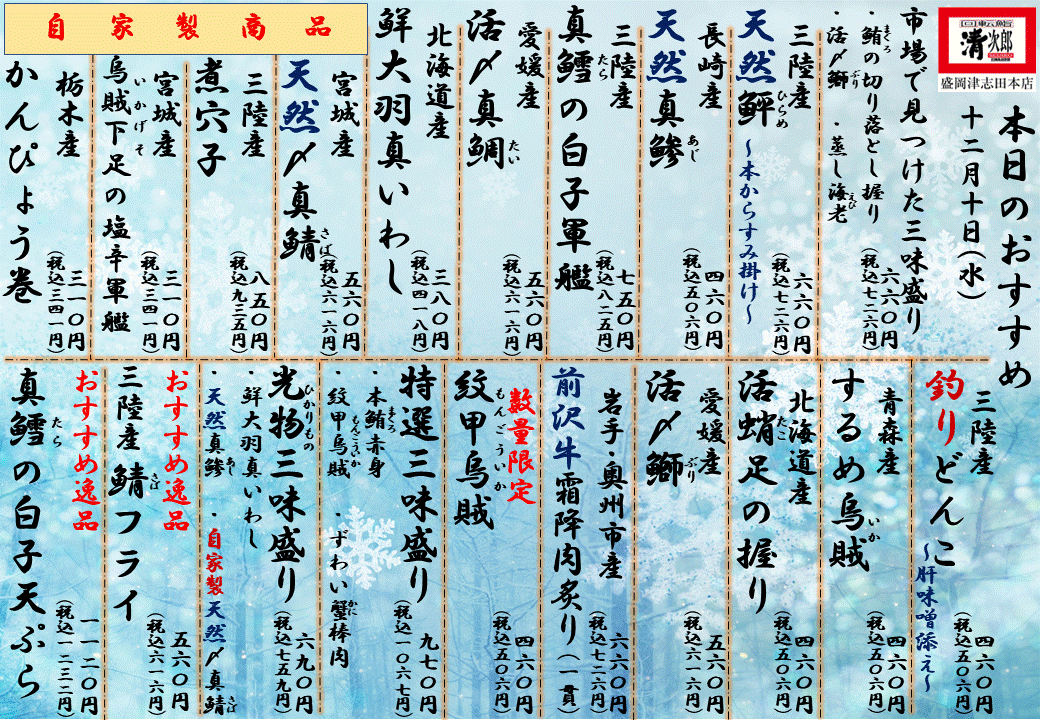 回転鮨
清次郎
盛岡津志田本店
本日のおすすめ
十二月十日(水)
市場で見つけた三味盛り
・鮪の切り落とし握り
まぐろ
・活〆鰤 ・蒸し海老
ぶり
えび
六六〇円
(税込七二六円)
三陸産
天然鮃
ひらめ
~本からすみ掛け~
六六〇円
(税込七二六円)
長崎産
天然真鯵
あじ
四六〇円
(税込五〇六円)
三陸産
真鱈の白子軍艦
たら
七五〇円
(税込八二五円)
愛媛産
活〆真鯛
たい
五六〇円
(税込六一六円)
北海道産
鮮大羽真いわし
三八〇円
(税込四一八円)
自家製商品
宮城産
天然〆真鯖
さば
五六〇円
(税込六一六円)
三陸産
煮穴子
八五〇円
(税込九三五円)
宮城産
烏賊下足の塩辛軍艦
いかげそ
三一〇円
(税込三四一円)
栃木産
かんぴょう巻
三一〇円
(税込三四一円)
三陸産
釣りどんこ
~肝味噌添え~
四六〇円
(税込五〇六円)
青森産
するめ烏賊
いか
四六〇円
(税込五〇六円)
北海道産
活蛸足の握り
たこ
四六〇円
(税込五〇六円)
愛媛産
活〆鰤
ぶり
五六〇円
(税込六一六円)
岩手・奥州市産
前沢牛霜降肉炙り(一貫)
六六〇円
(税込七二六円)
数量限定
紋甲烏賊
もんごういか
四六〇円
(税込五〇六円)
特選三味盛り
・本鮪赤身
まぐろ
・紋甲烏賊 ・ずわい蟹棒肉
もんごういか
かに
九七〇円
(税込一〇六七円)
光物三味盛り
ひかりもの
・鮮大羽真いわし
・天然真鯵 ・自家製天然〆真鯖
あじ
さば
六九〇円
(税込七五九円)
おすすめ逸品
三陸産 鯖フライ
さば
五六〇円
(税込六一六円)
おすすめ逸品
真鱈の白子天ぷら
たら
一一二〇円
(税込一二三二円)